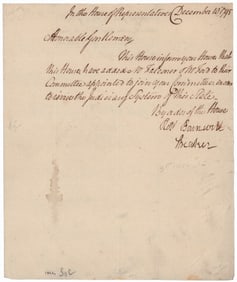 In the House of Representatives December 10 1795
Honorable Gentlemen
This House inform your House that
this House have added Mr Falconer & Mr Ford to their
Committee appointed to join your Committee
to revise the Judiciary System of this State.
By order of the House
Robt Barnwell
Speaker